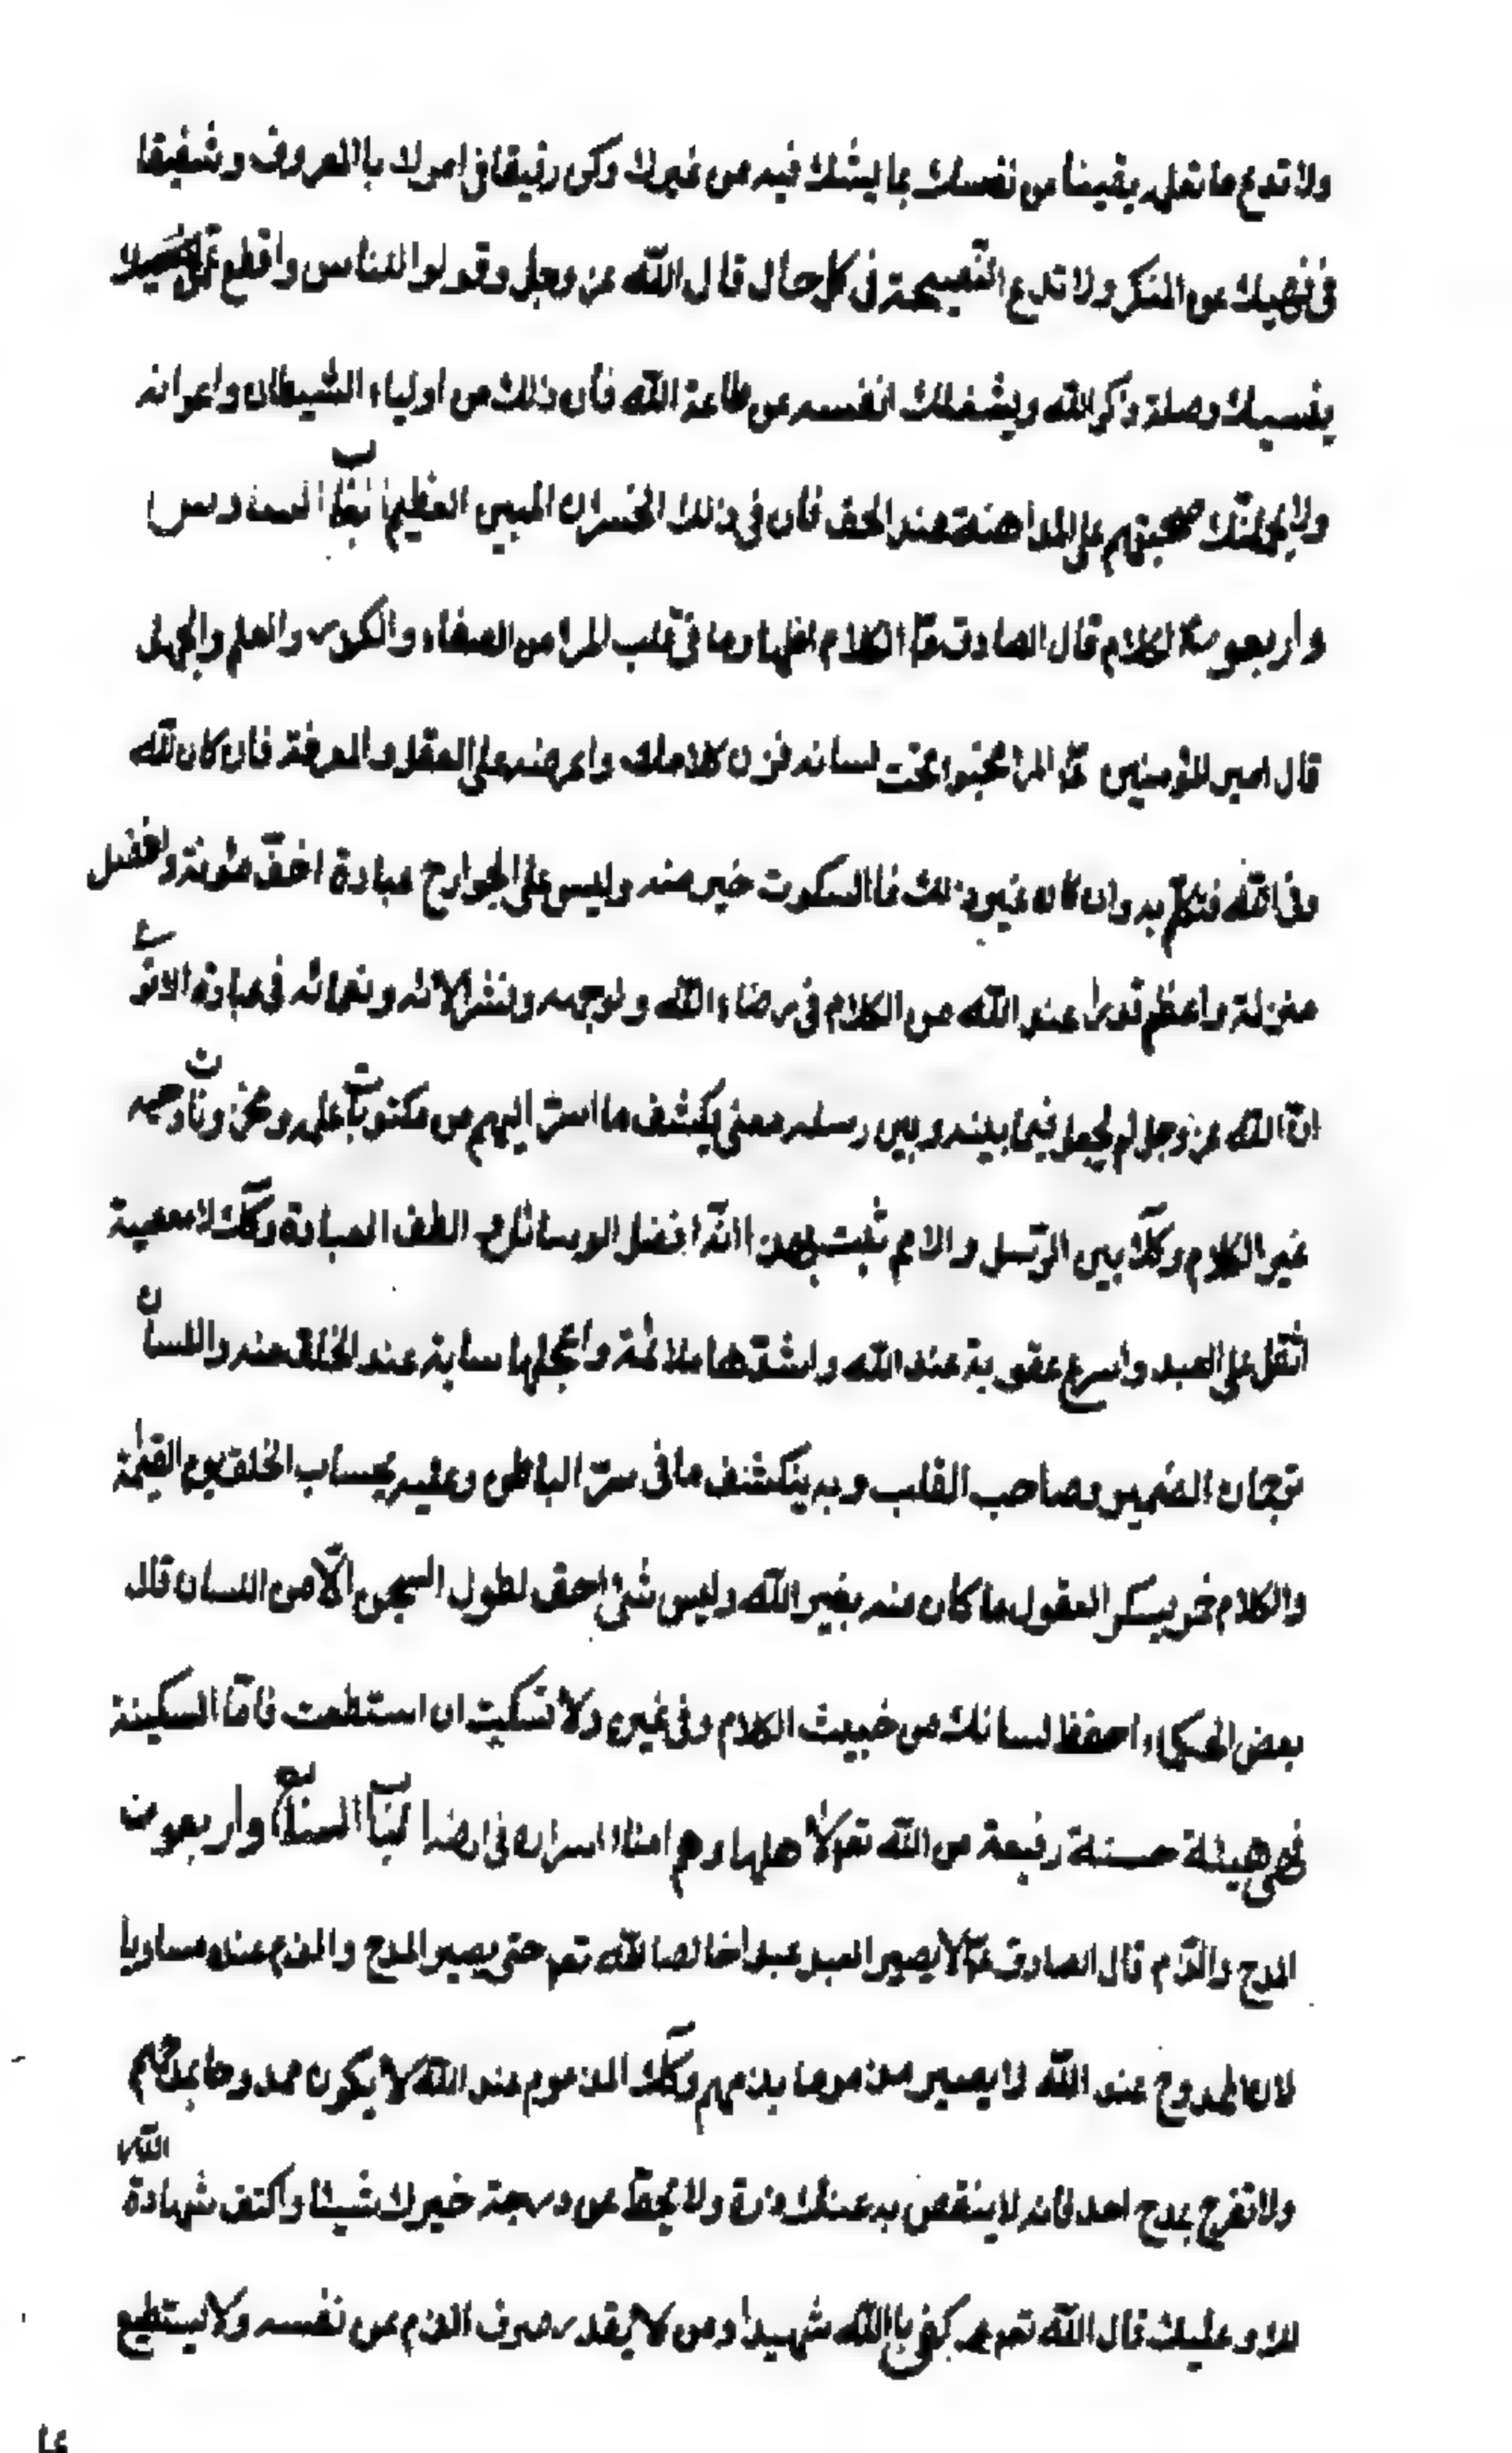 ولا تدع ما تعلمه يقينا من نفسك بما يشك فيه من غيرك وكن رفيقا فى امرك باالمعروف وشفيقا
فى نهيك عن المنكر ولا تدع النصيحة فى كل حال قال الله عز وجل وقولوا للناس واقطع
ينسيك وصلة ذكر الله ويشغلك انفسه عن طاعة الله فان ذلك من اولياء الشيطان واعوانه
ولا يحملنك صحبتهم على المداهنة عند الحق فان فى ذلك الخسران المبين العظيم الباب السادس
واربعون الكلام قال الصادق ع الكلام اظهار ما فى قلب المرا من الصفاء والكدر والعلم والجهل
قال امير المؤمنين ع المرا مخبوا تحت لسانه فزن كلامك واعرضه على العقل والمعرفة فان كان لله
وفى الله فتكلم به وان كان غير ذلك فاالسكوت خير منه وليس على الجوارح عبادة اخف مئونة وافضل
منزلة واعظم قدرا عند الله من الكلام فى رضاء الله ولوجهه ونشر الائه ونعمائه فى عباده الا ترى
ان الله عز وجل لم يجعل فيما بينه وبين رسله معنى يكشف ما اسر اليهم من مكتوبات علمه ومخزونات وحيه
غير الكلام وكك بين الرسل والامم ثبت بهذا انه افضل الوسائل و الطف العبادة وكك لا معصية
اثقل على العبد واسرع عقوبة عند الله واشدها ملائمة واعجلها سابة عند الخلق منه واللسان
ترجمان الضمير وصاحب القلب وبه ينكشف ما فى سر الباطن وعليه يحساب الخلق يوم القيمة
والكلام خمر يسكر العقول ما كان منه بغير الله وليس شئ احق لطول السجن الا من اللسان قال
بعض الحكماء احفظ لسانك من خبيث الكلام وفى غيره ولا تسكت ان استطعت فاما السكينة
فهى هيئة حسنة رفيعة من الله تعم لاهلها وهم امناء اسراره فى ارضه الباب السابع واربعون
المدح والذم قال الصادق ع لا يصير العبد عبدا خالصا لله تعم حتى يصير المدح والذم عنده مساويا
لان الممدوح عند الله لا يصير مذموما بذمهم وكك المذموم عند الله لا يكون ممدوحا بمدحهم
ولا تفرح بمدح احد فانه لا ينقص به عنك ذرة ولا يحط عن درجة خيرك شيئا واكتف شهادة الله
لك وعليك قال الله تعم كفى باالله شهيدا ومن لا يقدر صرف الذم عن نفسه ولا يستطيع